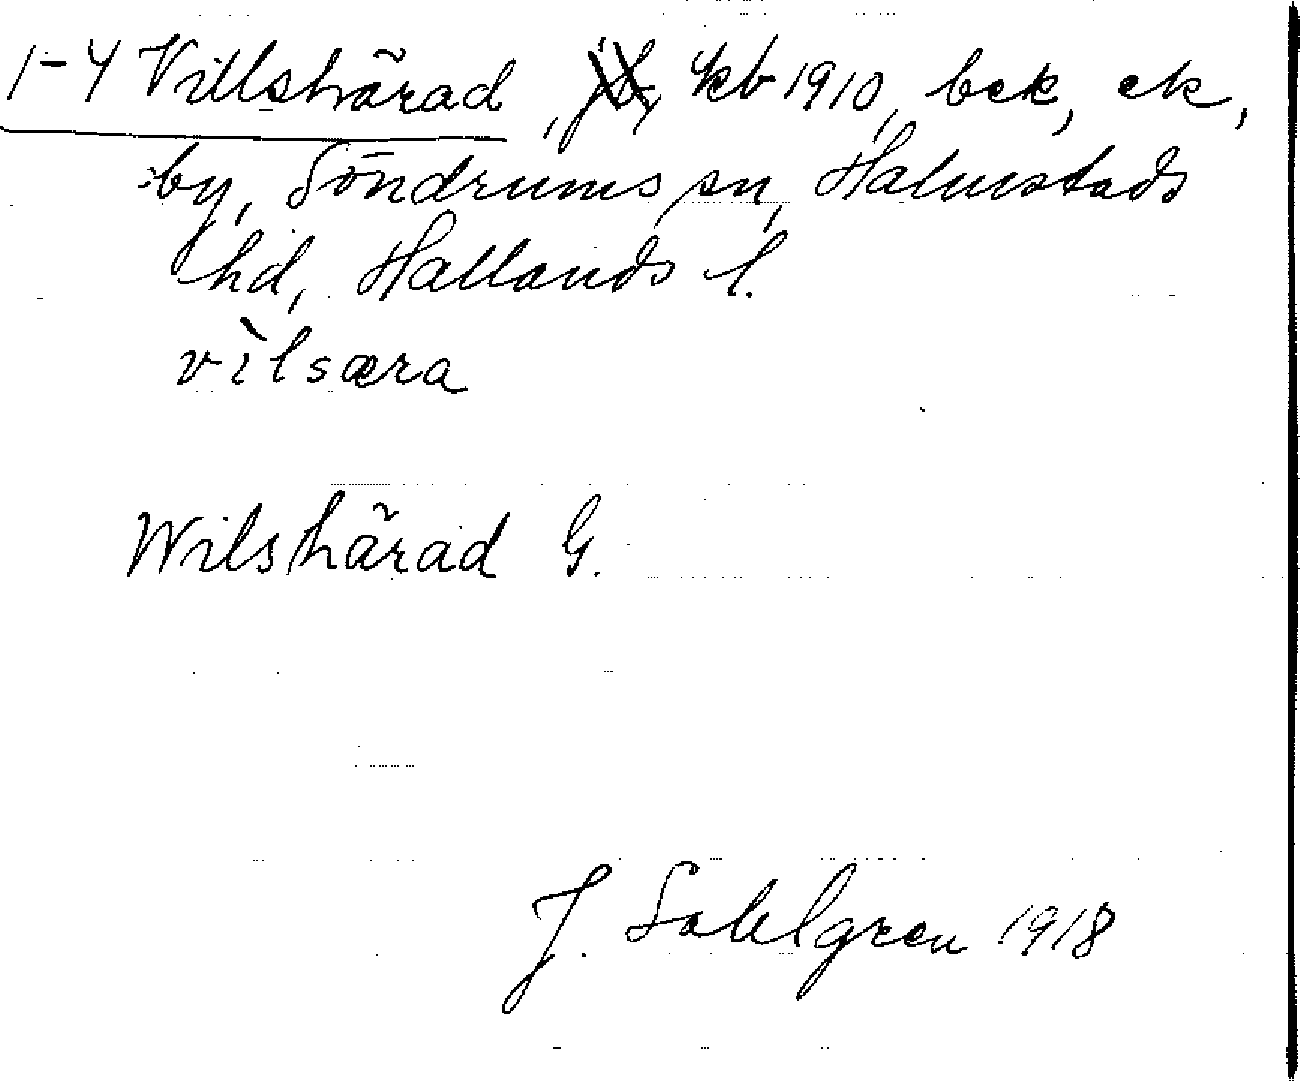 1-4 Villshärad, kb 1910, bek, ek,
by, Söndrums sn, Halmstads
hd, Hallands l.
vìlsæra
Wilshärad G.
J. Sahlgren 1918